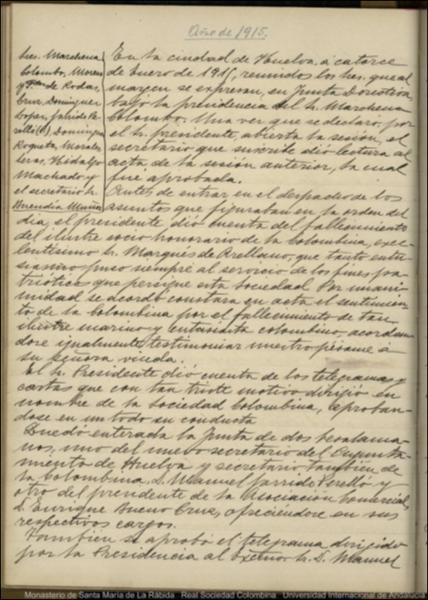 Año de 1915.
Sres. Marchena
Colombo, Moreno
y de Rodas,
Cruz, Dominguez
Lopez, Garrido Pe-
relló (M), Dominguez
Roqueta, Morales
Hidalgo
Machado y
el secretario Sr.
Buendia Muñoz
En la ciudad de Huelva, á catorce
de Enero de 1915, reunidos los Sres. que al
margen se expresan, en Junta Directiva,
bajo la presidencia del Sr. Marchena
Colombo. Una vez que se declaró por
el Sr. presidente, abierta la sesión, el
secretario que suscribe dió lectura al
acta de la sesión anterior, la cual
fué aprobada.
Antes de entrar en el despacho de los
asuntos que figuraban en la orden del
dia, el presidente dió cuenta del fallecimiento
del ilustre socio honorario de la Colombina, exce-
lentisimo Sr. Marqués de Arellano, que tanto entu-
siasmo puso siempre al servicio de los fines pa-
trióticos que persigue esta Sociedad. Por unani-
midad se acordó constara en acta el sentimien-
to de la Colombina por el fallecimiento de tan
ilustre marino y entusiasta colombino, acordan-
dose igualmente, testimoniar nuestro pésame á
su señora viuda.
El Sr. Presidente dió cuenta de los telegramas y
cartas que con tan triste motivo dirigió en
nombre de la Sociedad Colombina, aproban-
dose en un todo su conducta
Quedó enterada la Junta de dos besalama-
nos, uno del nuevo secretario del Ayunta-
miento de Huelva y secretario tambien de
la Colombina, D. Manuel Garrido Perelló y
otro del presidente de la Asociación Comercial,
D. Enrique Bueno Cruz, ofreciéndose en sus
respectivos cargos.
Tambien se aprobó el telegrama dirigido
por la Presidencia al Excmo. Sr. D. Manuel
Monasterio de Santa María de La Rábida. Real Sociedad Colombina. Universidad Internacional de Andalucía